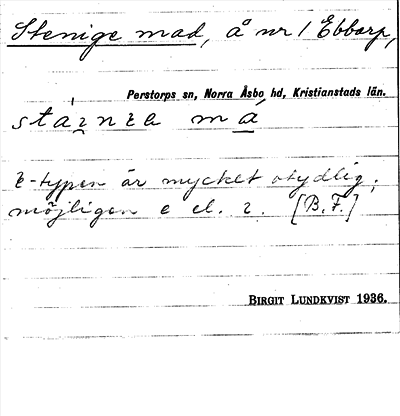 Stenige mad, å nr 1 Ebbarp,
Perstorps sn, Norra Åsbo hd, Kristianstads län.
må
typen är mycket otydlig,
möjligen e el. [B.F.]
BIRGIT LUNDKVIST 1936.